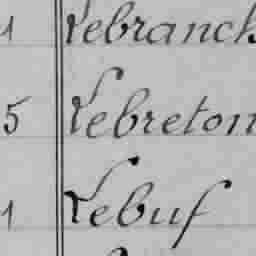 1 Lebranch
5 Lebreton
1 Lebuf